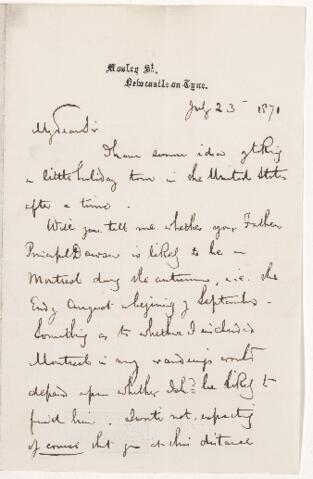 Mosley St.
Newcastle on Tyne.
July 23 1871
My dear Sir
I have some idea of taking
a little holiday tour in the United States
after a time.
Will you tell me whether your Father
Principal Dawson is likely to be in
Montreal during the autumn, i.e. the
End of August or beginning of September.
Something as to whether I included
Montreal in my wanderings would
depend upon whether I shd. be likely to
find him. I write not, expecting
of course that you at this distance